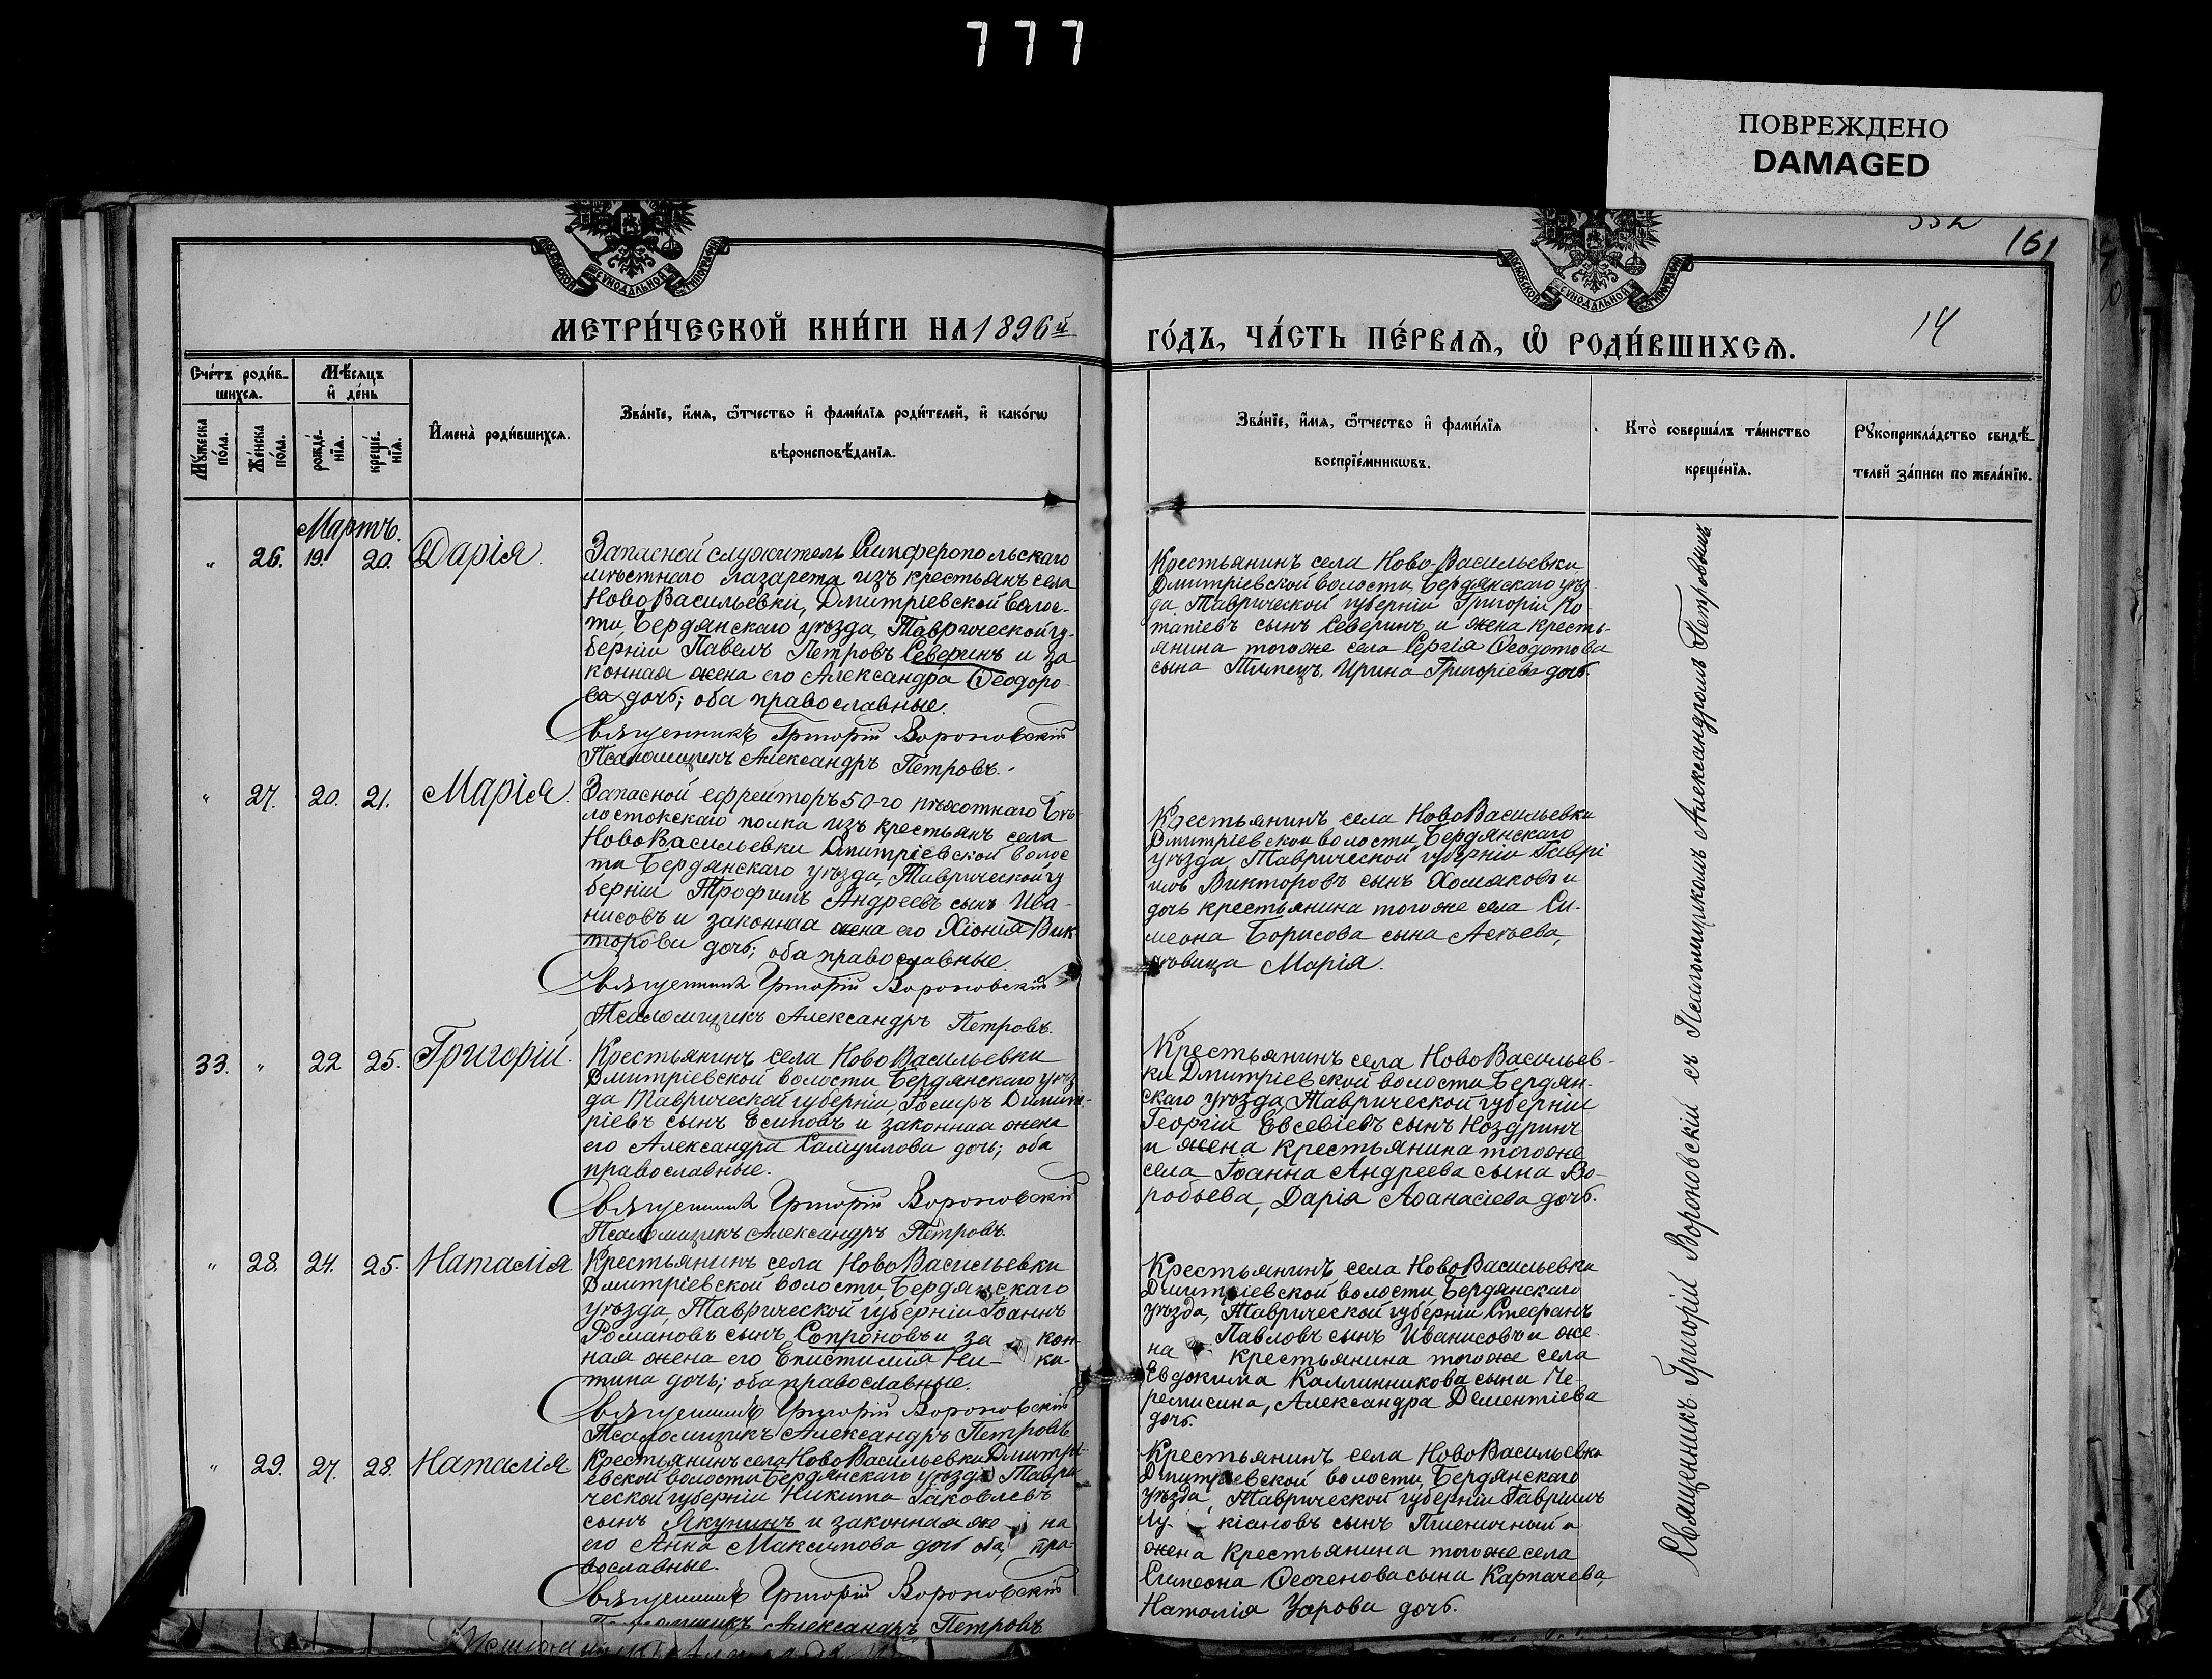 777
ПОВРЕЖДЕНО
DAMAGED
332
161
14
МОСКОВСКОЙ СѴНОДАЛЬНОЙ ТИПОГРАФІИ
МОСКОВСКОЙ СѴНОДАЛЬНОЙ ТИПОГРАФІИ
МЕТРИ́ЧЕСКОЙ КНИ́ГИ НА 1896й
ГО́ДЪ, ЧА́СТЬ ПЕ́РВАЯ, Ѡ РОДИ́ВШИХСЯ.
Сче́тъ роди́в-
шихся.
Мѣ́сяцъ
и де́нь
Му́жеска
по́ла.
Же́нска
по́ла.
рожде́-
нія.
креще́-
нія.
Имена̀ роди́вшихся.
Зва́ніе, и́мя, ѻ́тчество и фами́лія роди́телей, и како́гѡ
вѣроисповѣ́данія.
Зва́ніе, и́мя, ѻ́тчество и фами́лія
воспріе́мникѡвъ.
Кто̀ соверша́лъ та́инство
креще́нія.
Рукоприкла́дство свидѣ́-
телей за́писи по жела́нію.
Мартъ.
" 26. 19. 20. Дарія.
Запасной служитель Симферопольскаго
мѣстнаго лазарета изъ крестьянъ села
Ново Васильевки, Дмитріевской волос-
ти, Бердянскаго уѣзда, Таврической гу-
берніи Павелъ Петровъ Северинъ и за
конная жена его Александра Ѳеодоро-
ва дочь; оба православные.
Священникъ Григорій Вороновскій
Псаломщикъ Александръ Петровъ.
Крестьянинъ села Ново-Васильевки
Дмитріевской волости, Бердянскаго уѣз-
да Таврической губерніи Григорій По-
тапіевъ сынъ Северинъ и жена кресть-
янина того же села Сергія Ѳеодотова
сына Тяпецъ, Ирина Григоріева дочь.
" 27. 20. 21. Марія.
Запасной ефрейторъ 50-го пѣхотнаго Бѣ-
лостокскаго полка изъ крестьянъ села
Ново Васильевки Дмитріевской волос
ти Бердянскаго уѣзда, Таврической гу
берніи Трофимъ Андреевъ сынъ Ива-
нисовъ и законная жена его Хіонія Вик-
торови дочь; оба православные.
Священникъ Григорій Вороновскій
Псаломщикъ Александръ Петровъ.
Крестьянинъ села Ново Васильевки
Дмитріевской волости, Бердянскаго
уѣзда, Таврической губерніи Гаврі
илъ Викторовъ сынъ Хомяковъ и
дочь крестьянина того же села Си-
меона Борисова сына
Марія.
33. " 22 25. Григорій.
Крестьянинъ села Ново Васильевки
Дмитріевской волости Бердянскаго уѣз
да Таврической губерніи, Димит-
ріевъ сынъ Есиповъ и законная жена
его Александра Самуилова дочь; оба
православные.
Священникъ Григорій Вороновскій
Псаломщикъ Александръ Петровъ.
Крестьянинъ села Ново Васильев-
ки Дмитріевской волости Бердян-
скаго уѣзда, Таврической губерніи
Георгій Евсевіевъ сынъ Ноздринъ
и жена крестьянина того же
села Іоанна Андреева сына Во-
робьева, Дарія Аѳанасіева дочь.
" 28. 24. 25. Наталія
Крестьянинъ села Ново Васильевки
Дмитріевской волости, Бердянскаго
уѣзда, Таврической губерніи Іоаннъ
Романовъ сынъ Сопроновъ и за кон-
ная жена его Епистимія Ни- ки-
тина дочь; оба православные.
Священникъ Григорій Вороновскій
Псаломщикъ Александръ Петровъ
Крестьянинъ села Ново Васильевки
Дмитріевской волости, Бердянскаго
уѣзда, Таврической губерніи Стефанъ
Павловъ сынъ Иванисовъ и же-
на крестьянина того же села
Евдокима Каллинникова сына Че-
ремисина, Александра Дементіева
дочь.
" 29. 27. 28. Наталія
Крестьянинъ села Ново Васильевки Дмитрі-
евской волости Бердянскаго уѣзда Таври
ческой губерніи Никита Іаковлевъ
сынъ Якунинъ и законная же на
его Анна Максимова дочь оба пра-
вославные.
Священникъ Григорій Вороновскій
Псаломщикъ Александръ Петровъ
Крестьянинъ села Ново Васильевки
Дмитріевской волости, Бердянскаго
уѣзда, Таврической губерніи Гавріилъ
Лу- кіановъ сынъ Пшеничный и
жена крестьянина того же села
Симеона сына Карпачева,
Наталія Уарова дочь.
Священникъ Григорій Вороновскій съ Псаломщикомъ Александромъ Петровымъ